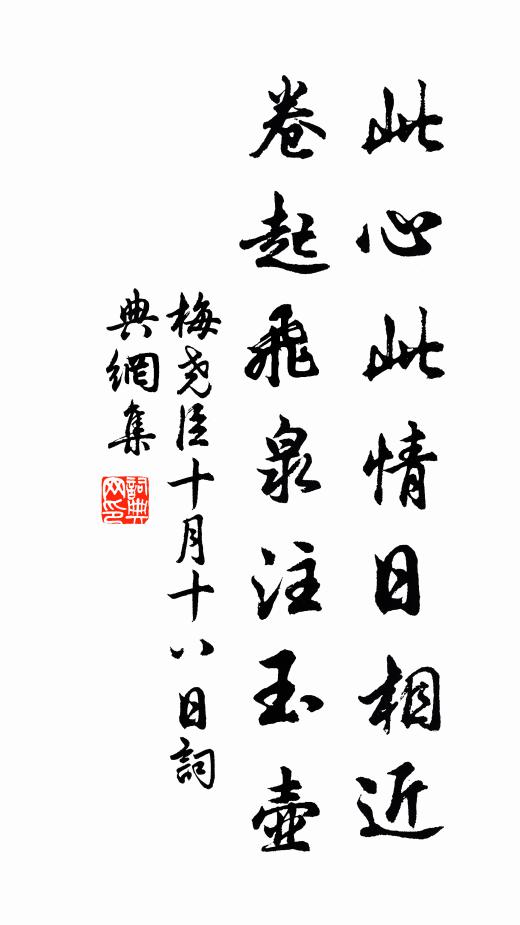 此心此情日相近
卷起飛泉注玉壺
梅尧臣十月十八日詞
典網集
詞典網印